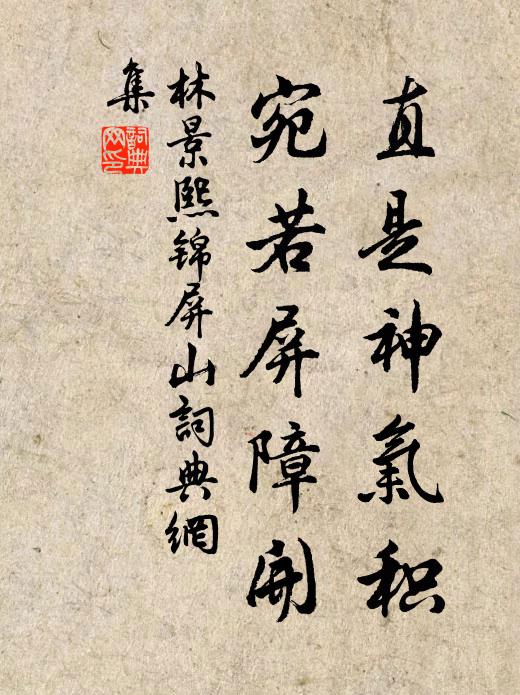 直是神氣积
宛若屏障開
林景熙錦屏山詞典網
集
詞典
网印